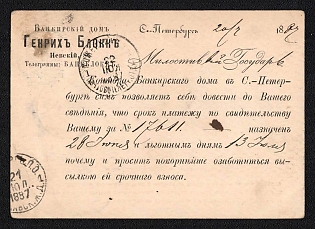 БАНКИРСКІЙ ДОМЪ
ГЕНРИХЪ БЛОККЪ
Невскій,
Телеграммы: БАНКБЛОККЪ
С.-Петербургъ 20/7 1887
Милостивый Государь
Банкирскаго дома въ С.-Пете-
рбургѣ симъ позволяетъ себѣ довести до Вашего
свѣдѣнія, что срокъ платежу по свидѣтельству
Вашему за № 17611. назначенъ
28 Іюня и льготнымъ днямъ 13 Іюля
почему и проситъ покорнѣйше озаботиться вы-
сылкою ей срочнаго взноса.
21
ІЮЛ.
1887